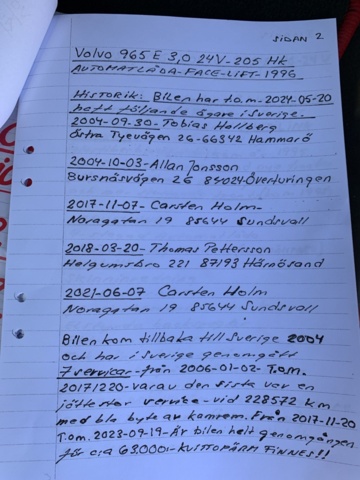 SIDAN 2
Volvo 965 E 3,0 24V-205 HK
AUTOMATLÅDA-FACE-LIFT-1996
HISTORIK: Bilen har t.o.m-2024-05-20
haft följande ägare i Sverige.
2004-09-30-Tobias Hallberg
Östra Tyevägen 26-66342 Hammarö
2004-10-03-Allan Jonsson
Bursnäsvägen 26 84024 Överturingen
2017-11-07- Carsten Holm-
Noragatan 19 85644 Sundsvall
2018-03-20-Thomas Pettersson
Helgumsbro 221 87193 Härnösand
2021-06-07 Carsten Holm
Noragatan 19 85644 Sundsvall
Bilen kom tillbaka till Sverige 2004
och har i Sverige genomgått
7 servicar-från 2006-01-02-T.o.m.
20171220-varav den sista var en
jättestor service-vid 228572 km
med bla byte av kamrem. Från 2017-11-20
T.o.m. 2023-09-19-Är bilen helt genomgången
för c:a 63.000:-KVITTOPÄRM FINNES!!